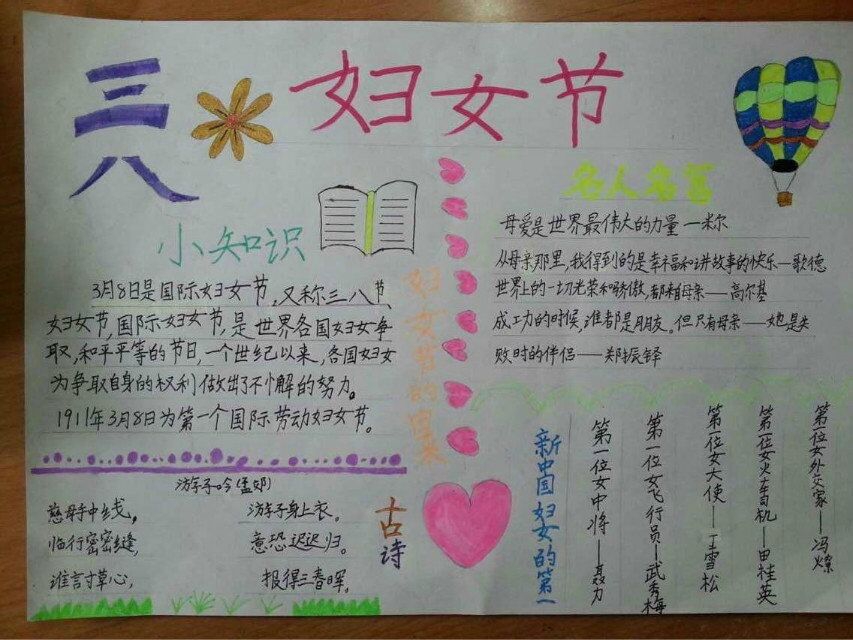 三八
妇女节
小知识
3月8日是国际妇女节，又称三八节、
妇女节，国际妇女节，是世界各国妇女争
取，和平平等的节日，一个世纪以来，各国妇女
为争取自身的权利做出了不懈的努力。
1911年3月8日为第一个国际劳动妇女节。
妇女节的由来
名人名言
母爱是世界最伟大的力量—米尔
从母亲那里，我得到的是幸福和讲故事的快乐—歌德
世界上的一切光荣和骄傲，都来自母亲——高尔基
成功的时候，谁都是朋友。但只有母亲——她是失
败时的伴侣——郑振铎
古诗
游子吟（孟郊）
慈母手中线， 游子身上衣。
临行密密缝， 意恐迟迟归。
谁言寸草心， 报得三春晖。
新中国妇女的第一
第一位女中将——聂力
第一位女飞行员—武秀梅
第一位女大使——丁雪松
第一位女火车司机—田桂英
第一位女外交家——冯燎